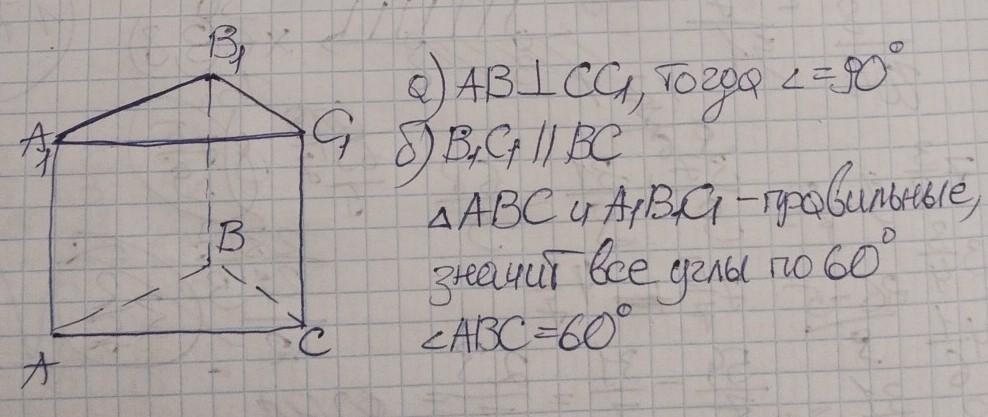 B₁
A₁
C₁
B
A
C
а) AB⊥CC₁, тогда ∠=90°
б) B₁C₁ || BC
△ABC и A₁B₁C₁ – правильные,
значит все углы по 60°
∠ABC=60°